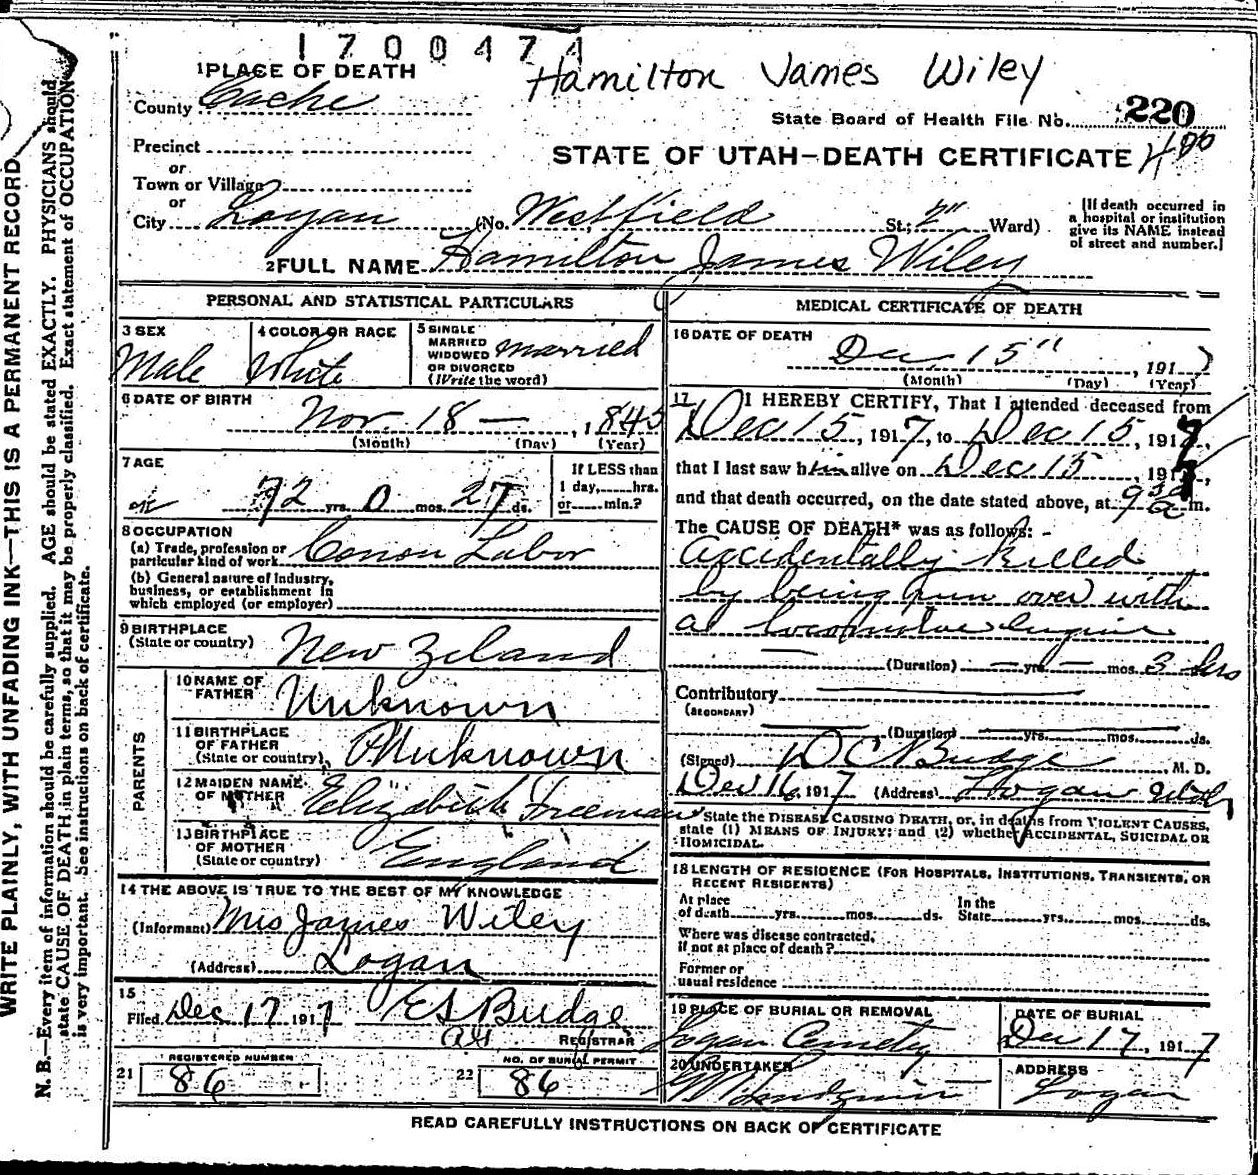 1700474
Hamilton James Wiley
1 PLACE OF DEATH
County Cache
State Board of Health File No. 220
Precinct
STATE OF UTAH—DEATH CERTIFICATE 400
or
Town or Village
or
City Logan (No. Westfield St.; 2" Ward)
[If death occurred in
a hospital or institution
give its NAME instead
of street and number.]
2 FULL NAME Hamilton James Wiley
PERSONAL AND STATISTICAL PARTICULARS
3 SEX
Male
4 COLOR OR RACE
White
5 SINGLE
MARRIED
WIDOWED
OR DIVORCED
(Write the word)
married
6 DATE OF BIRTH
Nov. 18 — , 1845
(Month) (Day) (Year)
7 AGE
72 yrs. 0 mos. 27 ds.
If LESS than
1 day, hrs.
or min.?
8 OCCUPATION
(a) Trade, profession or
particular kind of work Comon Labor
(b) General nature of industry,
business, or establishment in
which employed (or employer)
9 BIRTHPLACE
(State or country) New Zeland
PARENTS
10 NAME OF
FATHER Unknown
11 BIRTHPLACE
OF FATHER
(State or country) Unknown
12 MAIDEN NAME
OF MOTHER Elizabeth Freeman
13 BIRTHPLACE
OF MOTHER
(State or country) England
14 THE ABOVE IS TRUE TO THE BEST OF MY KNOWLEDGE
(Informant) Mrs James Wiley
(Address) Logan
15
Filed Dec 17 1917 E S Budge
REGISTRAR
REGISTERED NUMBER
21 86
NO. OF BURIAL PERMIT
22 86
MEDICAL CERTIFICATE OF DEATH
16 DATE OF DEATH
Dec 15" , 1917
(Month) (Day) (Year)
17 I HEREBY CERTIFY, That I attended deceased from
Dec 15, 1917, to Dec 15, 1917,
that I last saw him alive on Dec 15 1917,
and that death occurred, on the date stated above, at 9 30 a m.
The CAUSE OF DEATH* was as follows:
accidentally killed
by being run over with
a locomotive Engine
(Duration) — yrs. — mos. 3 hrs
Contributory
(SECONDARY)
(Duration) yrs. mos. ds.
(Signed) D C Budge M. D.
Dec 16, 1917 (Address) Logan Utah
*State the DISEASE CAUSING DEATH, or, in deaths from VIOLENT CAUSES,
state (1) MEANS OF INJURY; and (2) whether ACCIDENTAL, SUICIDAL OR
HOMICIDAL.
18 LENGTH OF RESIDENCE (FOR HOSPITALS, INSTITUTIONS, TRANSIENTS, OR
RECENT RESIDENTS)
At place
of death yrs. mos. ds.
In the
State yrs. mos. ds.
Where was disease contracted,
if not at place of death?
Former or
usual residence
19 PLACE OF BURIAL OR REMOVAL
Logan Cemety
DATE OF BURIAL
Dec 17, 1917
20 UNDERTAKER
ADDRESS
Logan
READ CAREFULLY INSTRUCTIONS ON BACK OF CERTIFICATE
WRITE PLAINLY, WITH UNFADING INK—THIS IS A PERMANENT RECORD
N. B.—Every item of information should be carefully supplied. AGE should be stated EXACTLY. PHYSICIANS should
state CAUSE OF DEATH in plain terms, so that it may be properly classified. Exact statement of OCCUPATION
is very important. See instructions on back of certificate.